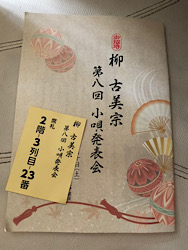 御招待
柳 古美宗
第八回 小唄発表会
柳 古美宗
第八回 小唄発表会
2階3列目23番